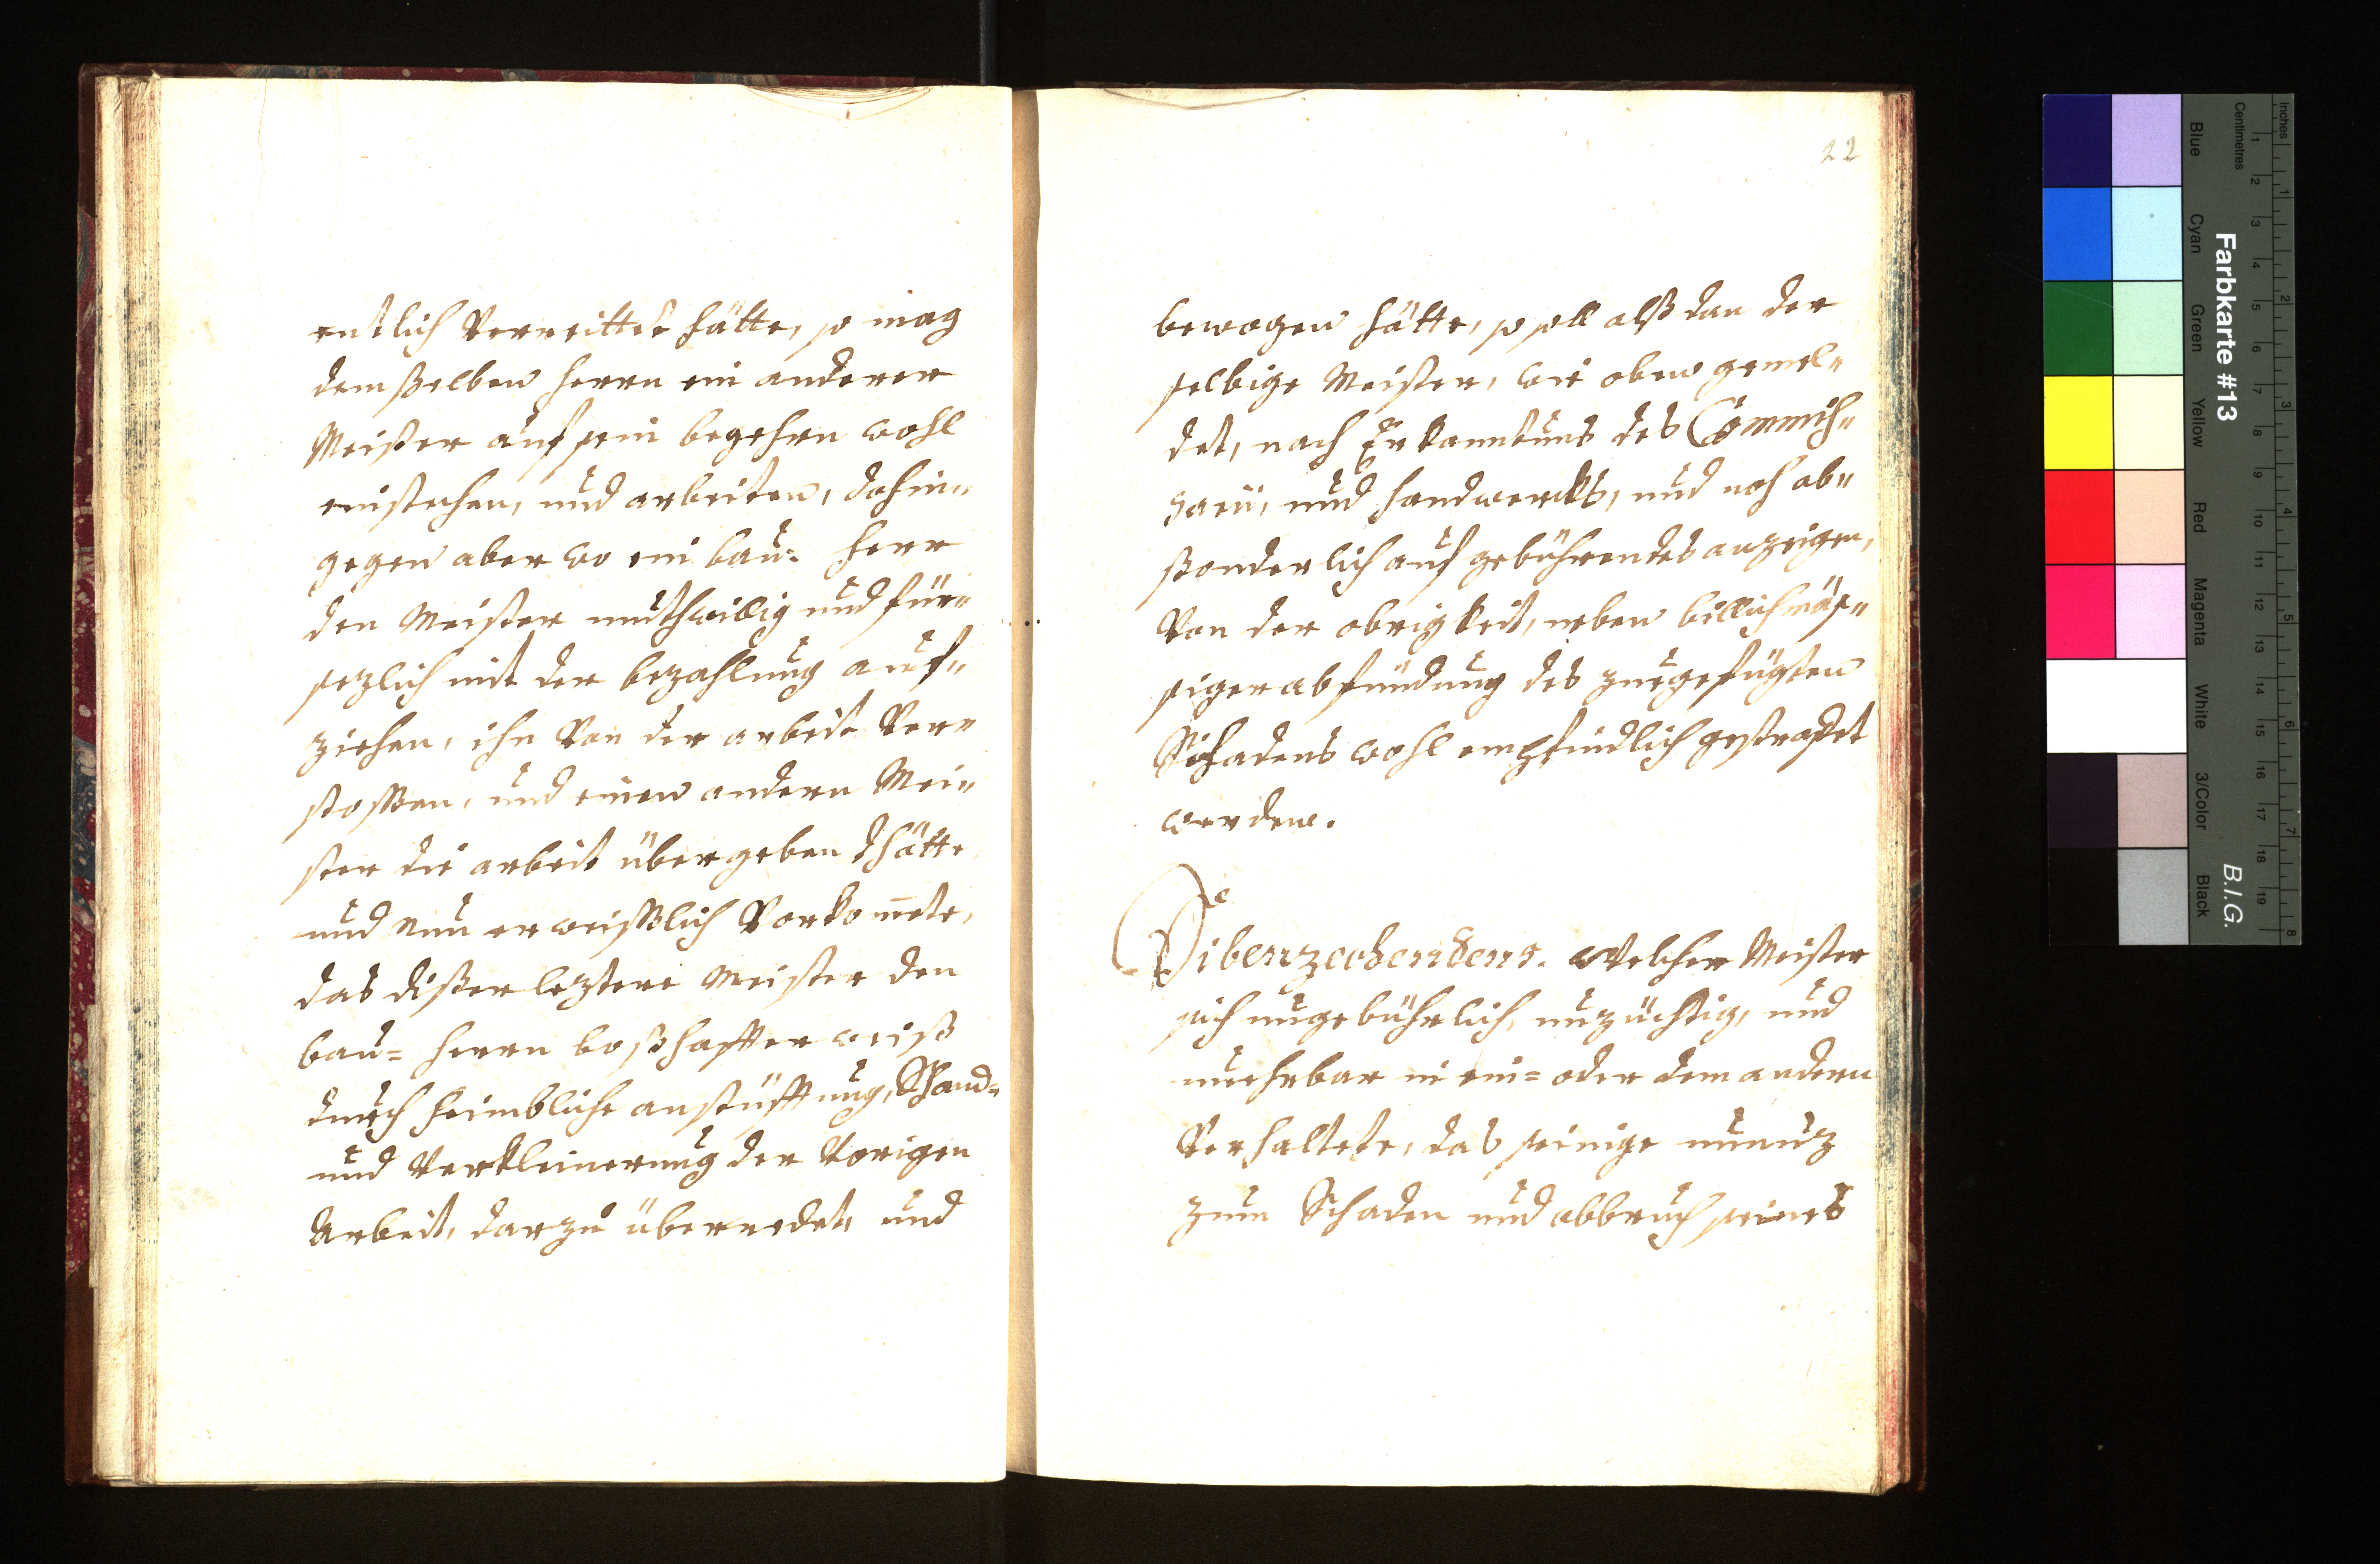 entlich Verreittet hätte, so mag
demßelben herrn ein anderer
Meister auf sein begehrn wohl
einstehen, und arbeiten, dahin„
gegen aber wo ein bau= herr
den Meister muthwillig und für„
sezlich mit der bezahlung auf„
ziehen, ihn Von der arbeit Ver„
stossen, und einen andern Mei„
ster die arbeit übergeben thätte
und nun erweißlich Vorkom̅ete,
das dißer leztere Meister den
bau= herrn boßhaffter weiß
durch heimbliche anstüfftung, Schand=
und Verkleinerung der Vorigen
Arbeit, darzu überredet, und
22
bewogen hätte, so soll alß dan der
selbige Meister, wie oben gemel„
det, nach Erkanntnus des Commiß„
sarii, und handwercks, und noch ab„
ßonderlich auf gebührendes anzeigen,
Von der obrigkeit, neben billichmäs„
siger abfindung des zuegefügten
Schadens wohl empfindlich gestraffet
werden.
Sibenzechendens. Welcher Meister
sich ungebührlich, unzüchtig, und
unehrbar in ein= oder dem andern
Verhaltete, das seinige unnuz
zum Schaden und abbruch seines
Farbkarte #13
B.I.G.
Inches
Centimetres
Blue
Cyan
Green
Yellow
Red
Magenta
White
3/Color
Black
1 2 3 4 5 6 7 8 9 10 11 12 13 14 15 16 17 18 19
1 2 3 4 5 6 7 8